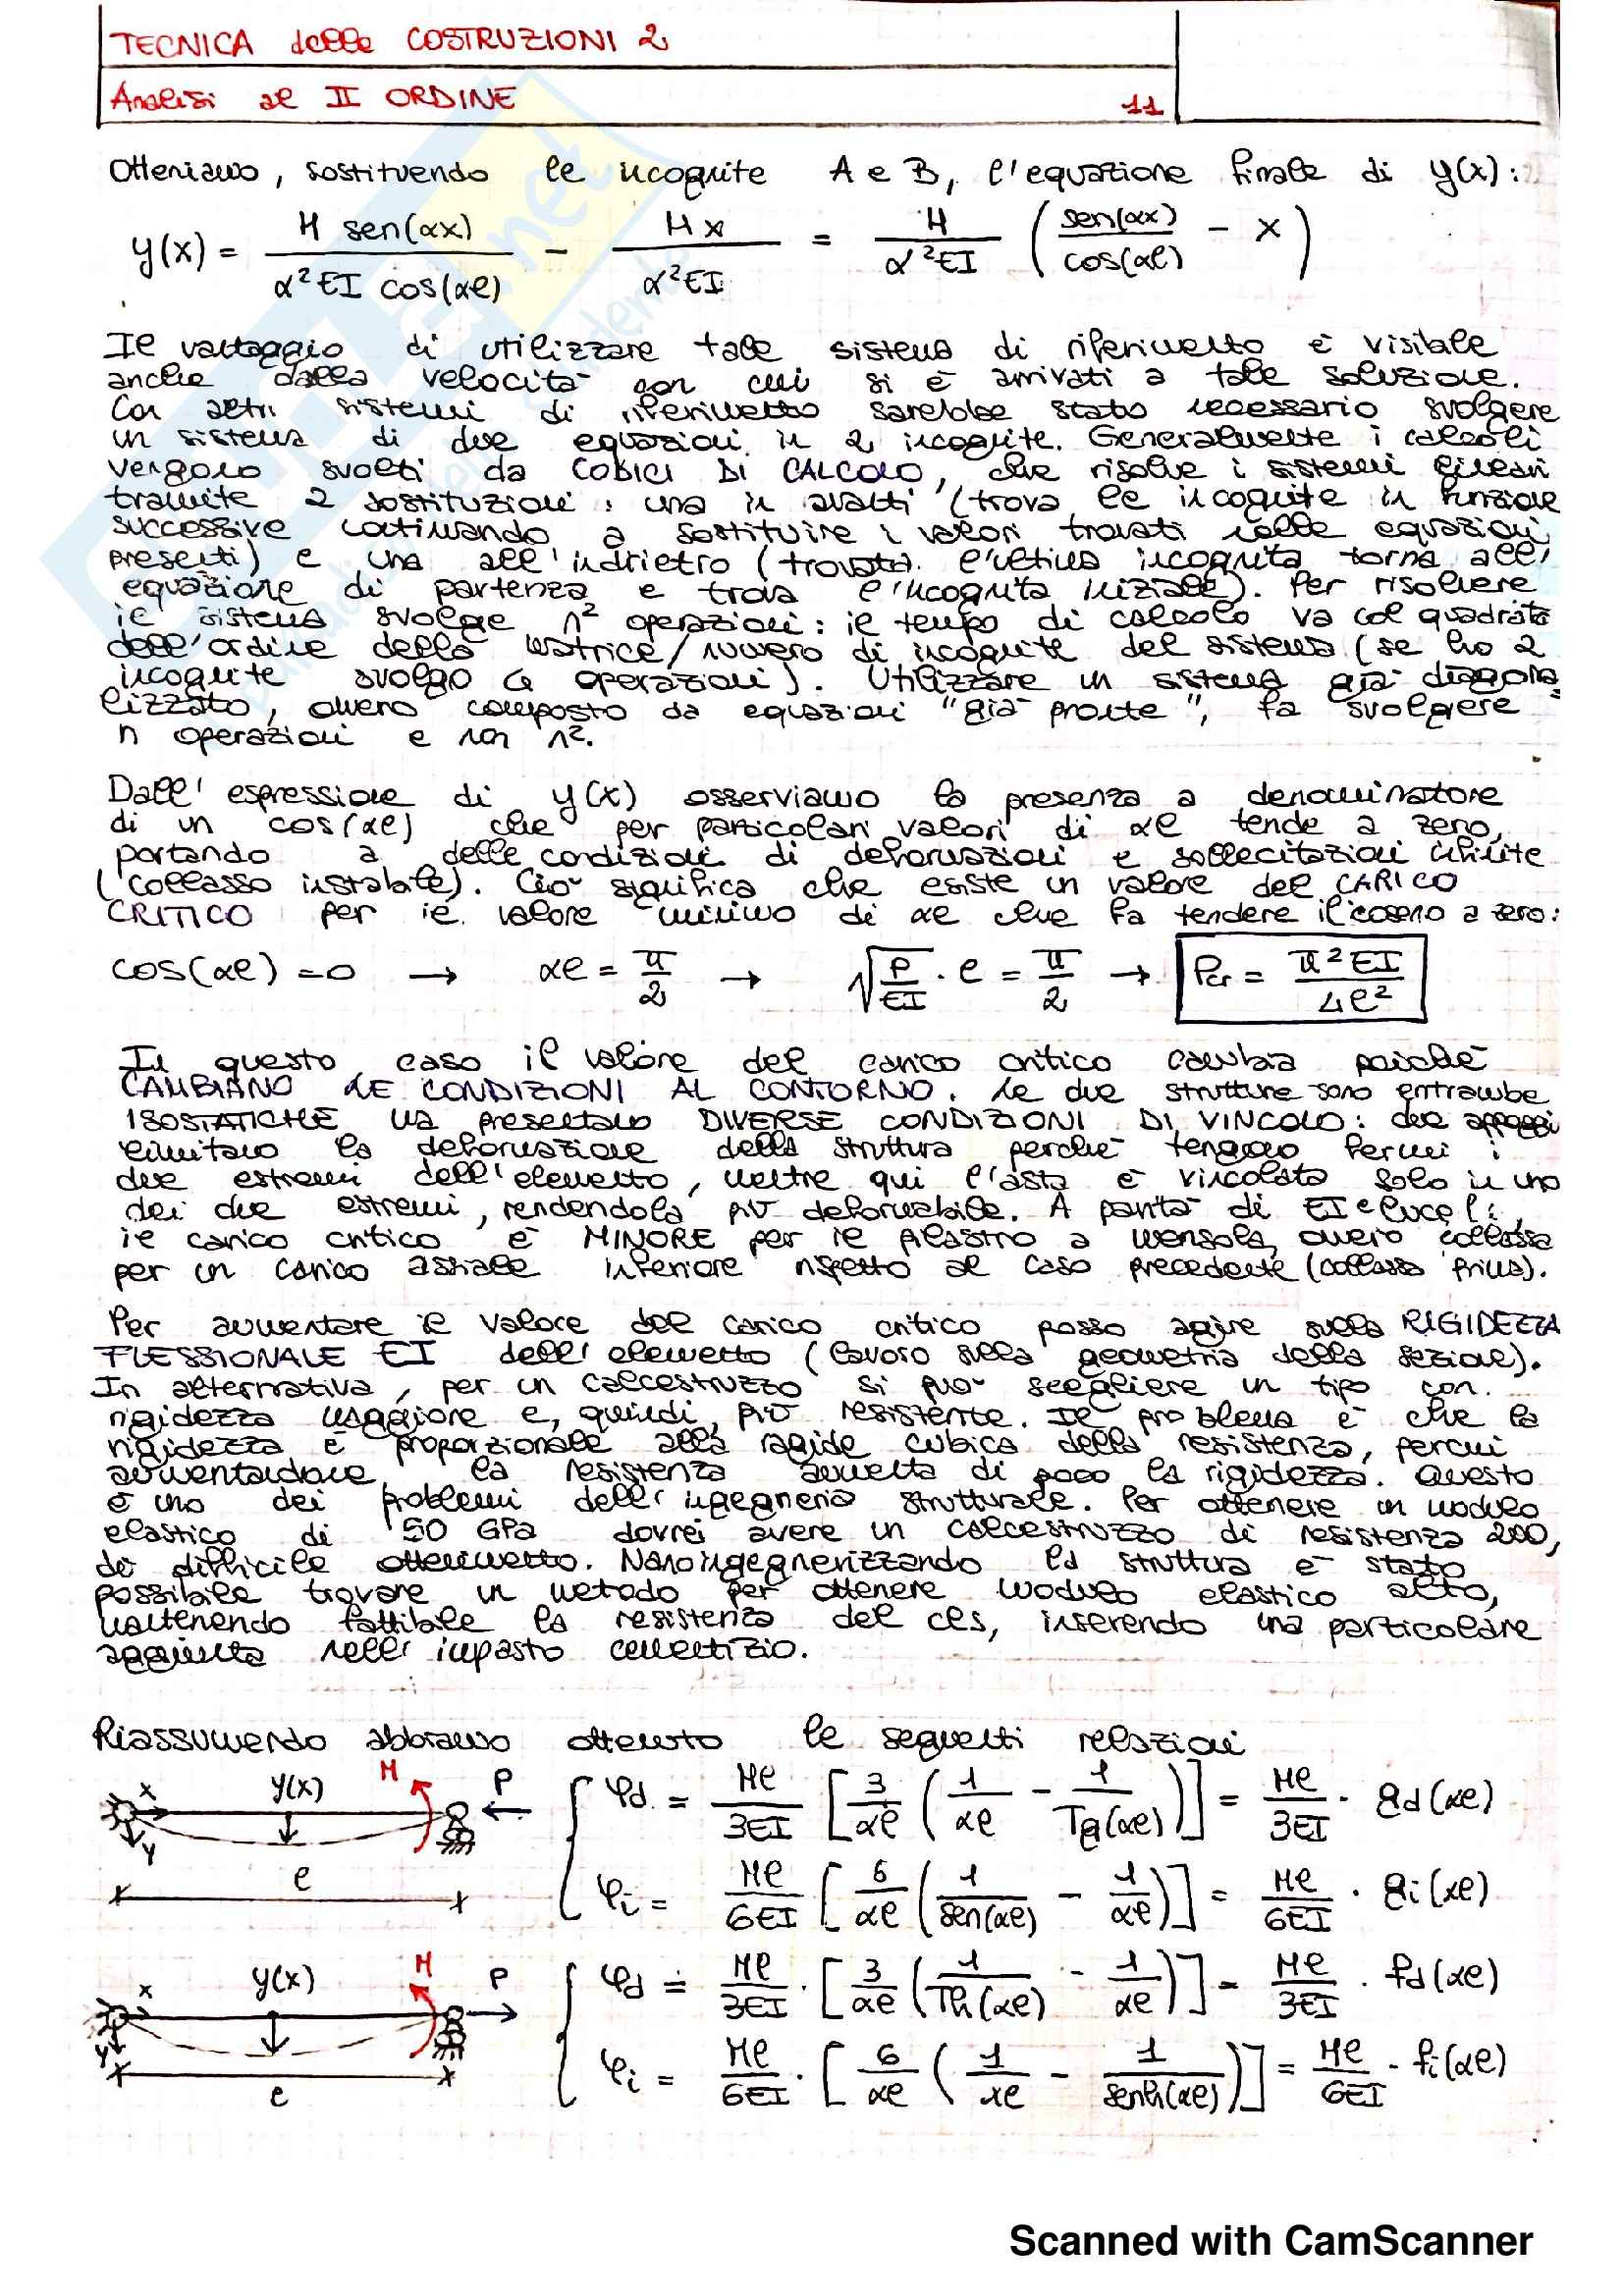 TECNICA delle COSTRUZIONI 2
Analisi al II ORDINE 11
Otteniamo, sostituendo le incognite A e B, l'equazione finale di y(x):
y(x) = H sen(αx) / α²EI cos(αl) - Hx / α²EI = H / α²EI ( sen(αx) / cos(αl) - x )
Il vantaggio di utilizzare tale sistema di riferimento è visibile
anche dalla velocità con cui si è arrivati a tale soluzione.
Con altri sistemi di riferimento sarebbe stato necessario svolgere
un sistema di due equazioni in 2 incognite. Generalmente i calcoli
vengono svolti da CODICI DI CALCOLO, che risolve i sistemi lineari
tramite 2 sostituzioni: una in avanti (trova le incognite in funzione
successive continuando a sostituire i valori trovati nelle equazioni
presenti) e una all'indietro (trovata l'ultima incognita torna all'
equazione di partenza e trova l'incognita iniziale). Per risolvere
il sistema svolge n² operazioni: il tempo di calcolo va col quadrato
dell'ordine della matrice/numero di incognite del sistema (se ho 2
incognite svolgo 4 operazioni). Utilizzare un sistema già diagona
lizzato, ovvero composto da equazioni "già pronte", fa svolgere
n operazioni e non n².
Dall'espressione di y(x) osserviamo la presenza a denominatore
di un cos(αl) che per particolari valori di αl tende a zero,
portando a delle condizioni di deformazioni e sollecitazioni infinite
(collasso instabile). Ciò significa che esiste un valore del CARICO
CRITICO per il valore minimo di αl che fa tendere il coseno a zero:
cos(αl) = 0 → αl = π/2 → √(P/EI) · l = π/2 → Pcr = π²EI / 4l²
In questo caso il valore del carico critico cambia poichè
CAMBIANO LE CONDIZIONI AL CONTORNO. Le due strutture sono entrambe
ISOSTATICHE ma presentano DIVERSE CONDIZIONI DI VINCOLO: due appoggi
limitano la deformazione della struttura perchè tengono fermi i
due estremi dell'elemento, mentre qui l'asta è vincolata solo in uno
dei due estremi, rendendola più deformabile. A parità di EI e luce l,
il carico critico è MINORE per il pilastro a mensola, ovvero collassa
per un carico assiale inferiore rispetto al caso precedente (collassa prima).
Per aumentare il valore del carico critico posso agire sulla RIGIDEZZA
FLESSIONALE EI dell'elemento (lavoro sulla geometria della sezione).
In alternativa, per un calcestruzzo si può scegliere un tipo con
rigidezza maggiore e, quindi, più resistente. Il problema è che la
rigidezza è proporzionale alla radice cubica della resistenza, percui
aumentandone la resistenza aumenta di poco la rigidezza. Questo
è uno dei problemi dell'ingegneria strutturale. Per ottenere un modulo
elastico di 50 GPa dovrei avere un calcestruzzo di resistenza 200,
di difficile ottenimento. Nanoingegnerizzando la struttura è stato
possibile trovare un metodo per ottenere modulo elastico alto,
mantenendo fattibile la resistenza del cls, inserendo una particolare
aggiunta nell'impasto cementizio.
Riassumendo abbiamo ottenuto le seguenti relazioni
x y(x) M P y l
φd = Ml/3EI [ 3/αl ( 1/αl - 1/Tg(αl) ) ] = Ml/3EI · gd(αl)
φi = Ml/6EI [ 6/αl ( 1/sen(αl) - 1/αl ) ] = Ml/6EI · gi(αl)
x y(x) M P y l
φd = Ml/3EI · [ 3/αl ( 1/Th(αl) - 1/αl ) ] = Ml/3EI · fd(αl)
φi = Ml/6EI · [ 6/αl ( 1/αl - 1/senh(αl) ) ] = Ml/6EI · fi(αl)
Scanned with CamScanner